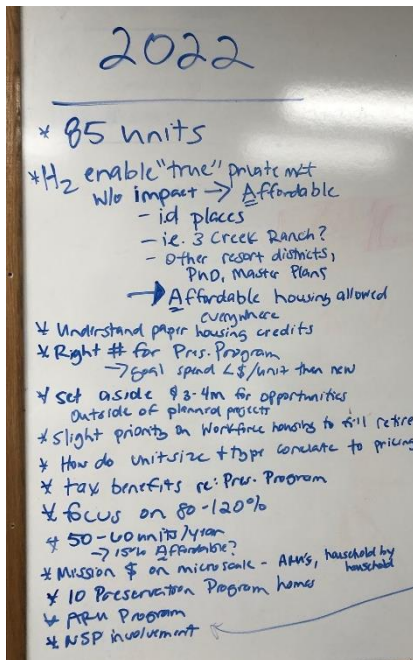 2022
* 85 units
* H2 enable "true" private mkt
w/o impact → Affordable
- id places
- ie. 3 Creek Ranch?
- Other resort districts,
PUD, Master Plans
→ Affordable housing allowed
everywhere
* Understand paper housing credits
* Right # for Pres. Program
→ goal spend < $/unit then new
* set aside $3-4m for opportunities
outside of planned projects
* Slight priority on Workforce housing to fill retire
* How do unit size + type correlate to pricing
* tax benefits re: Pres. Program
* focus on 80-120%
* 50-60 units/year
→ 15% Affordable?
* Mission $ on microscale - ARU's, household by
household
* 10 Preservation Program homes
* ARU Program
* NSP involvement